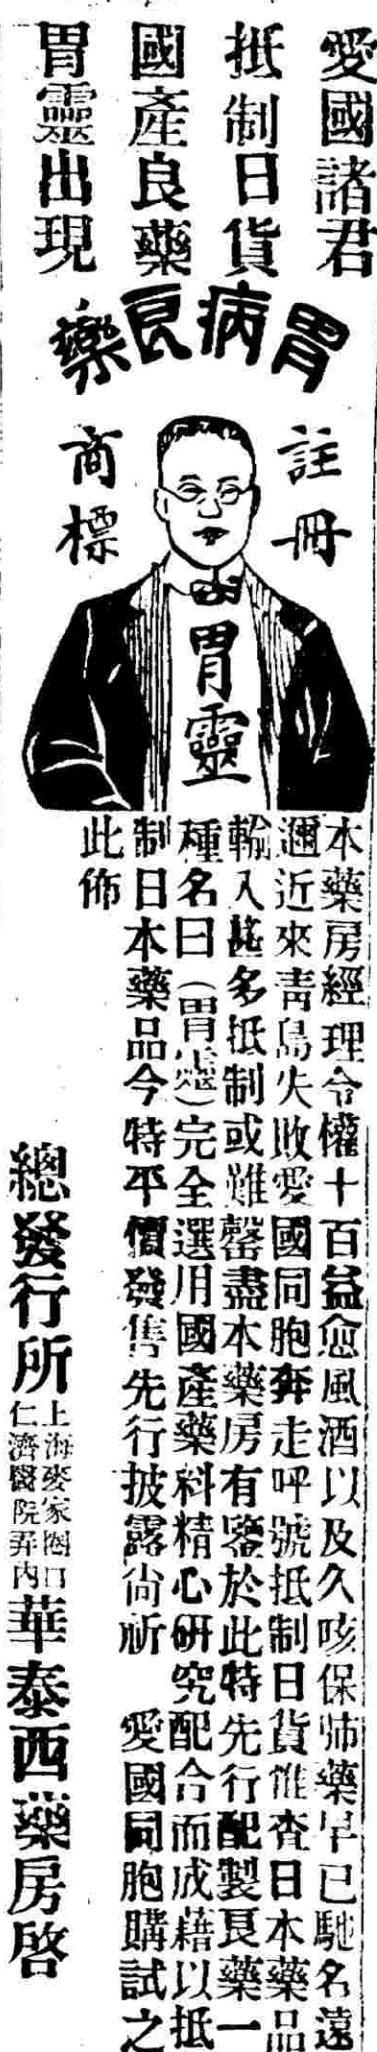 愛國諸君
抵制日貨
國產良藥
胃靈出現
胃病良藥
註冊
商標
胃靈
本藥房經理令權十百益愈風酒以及久咳保肺藥早已馳名遠
邇近來青島失敗愛國同胞奔走呼號抵制日貨惟查日本藥品
輸入甚多抵制或難罄盡本藥房有鑒於此特先行配製良藥一
種名曰（胃靈）完全選用國產藥料精心研究配合而成藉以抵
制日本藥品今特平價發售先行披露尙祈　愛國同胞購試之
此佈
總發行所
上海麥家圈口
仁濟醫院弄內
華泰西藥房啓